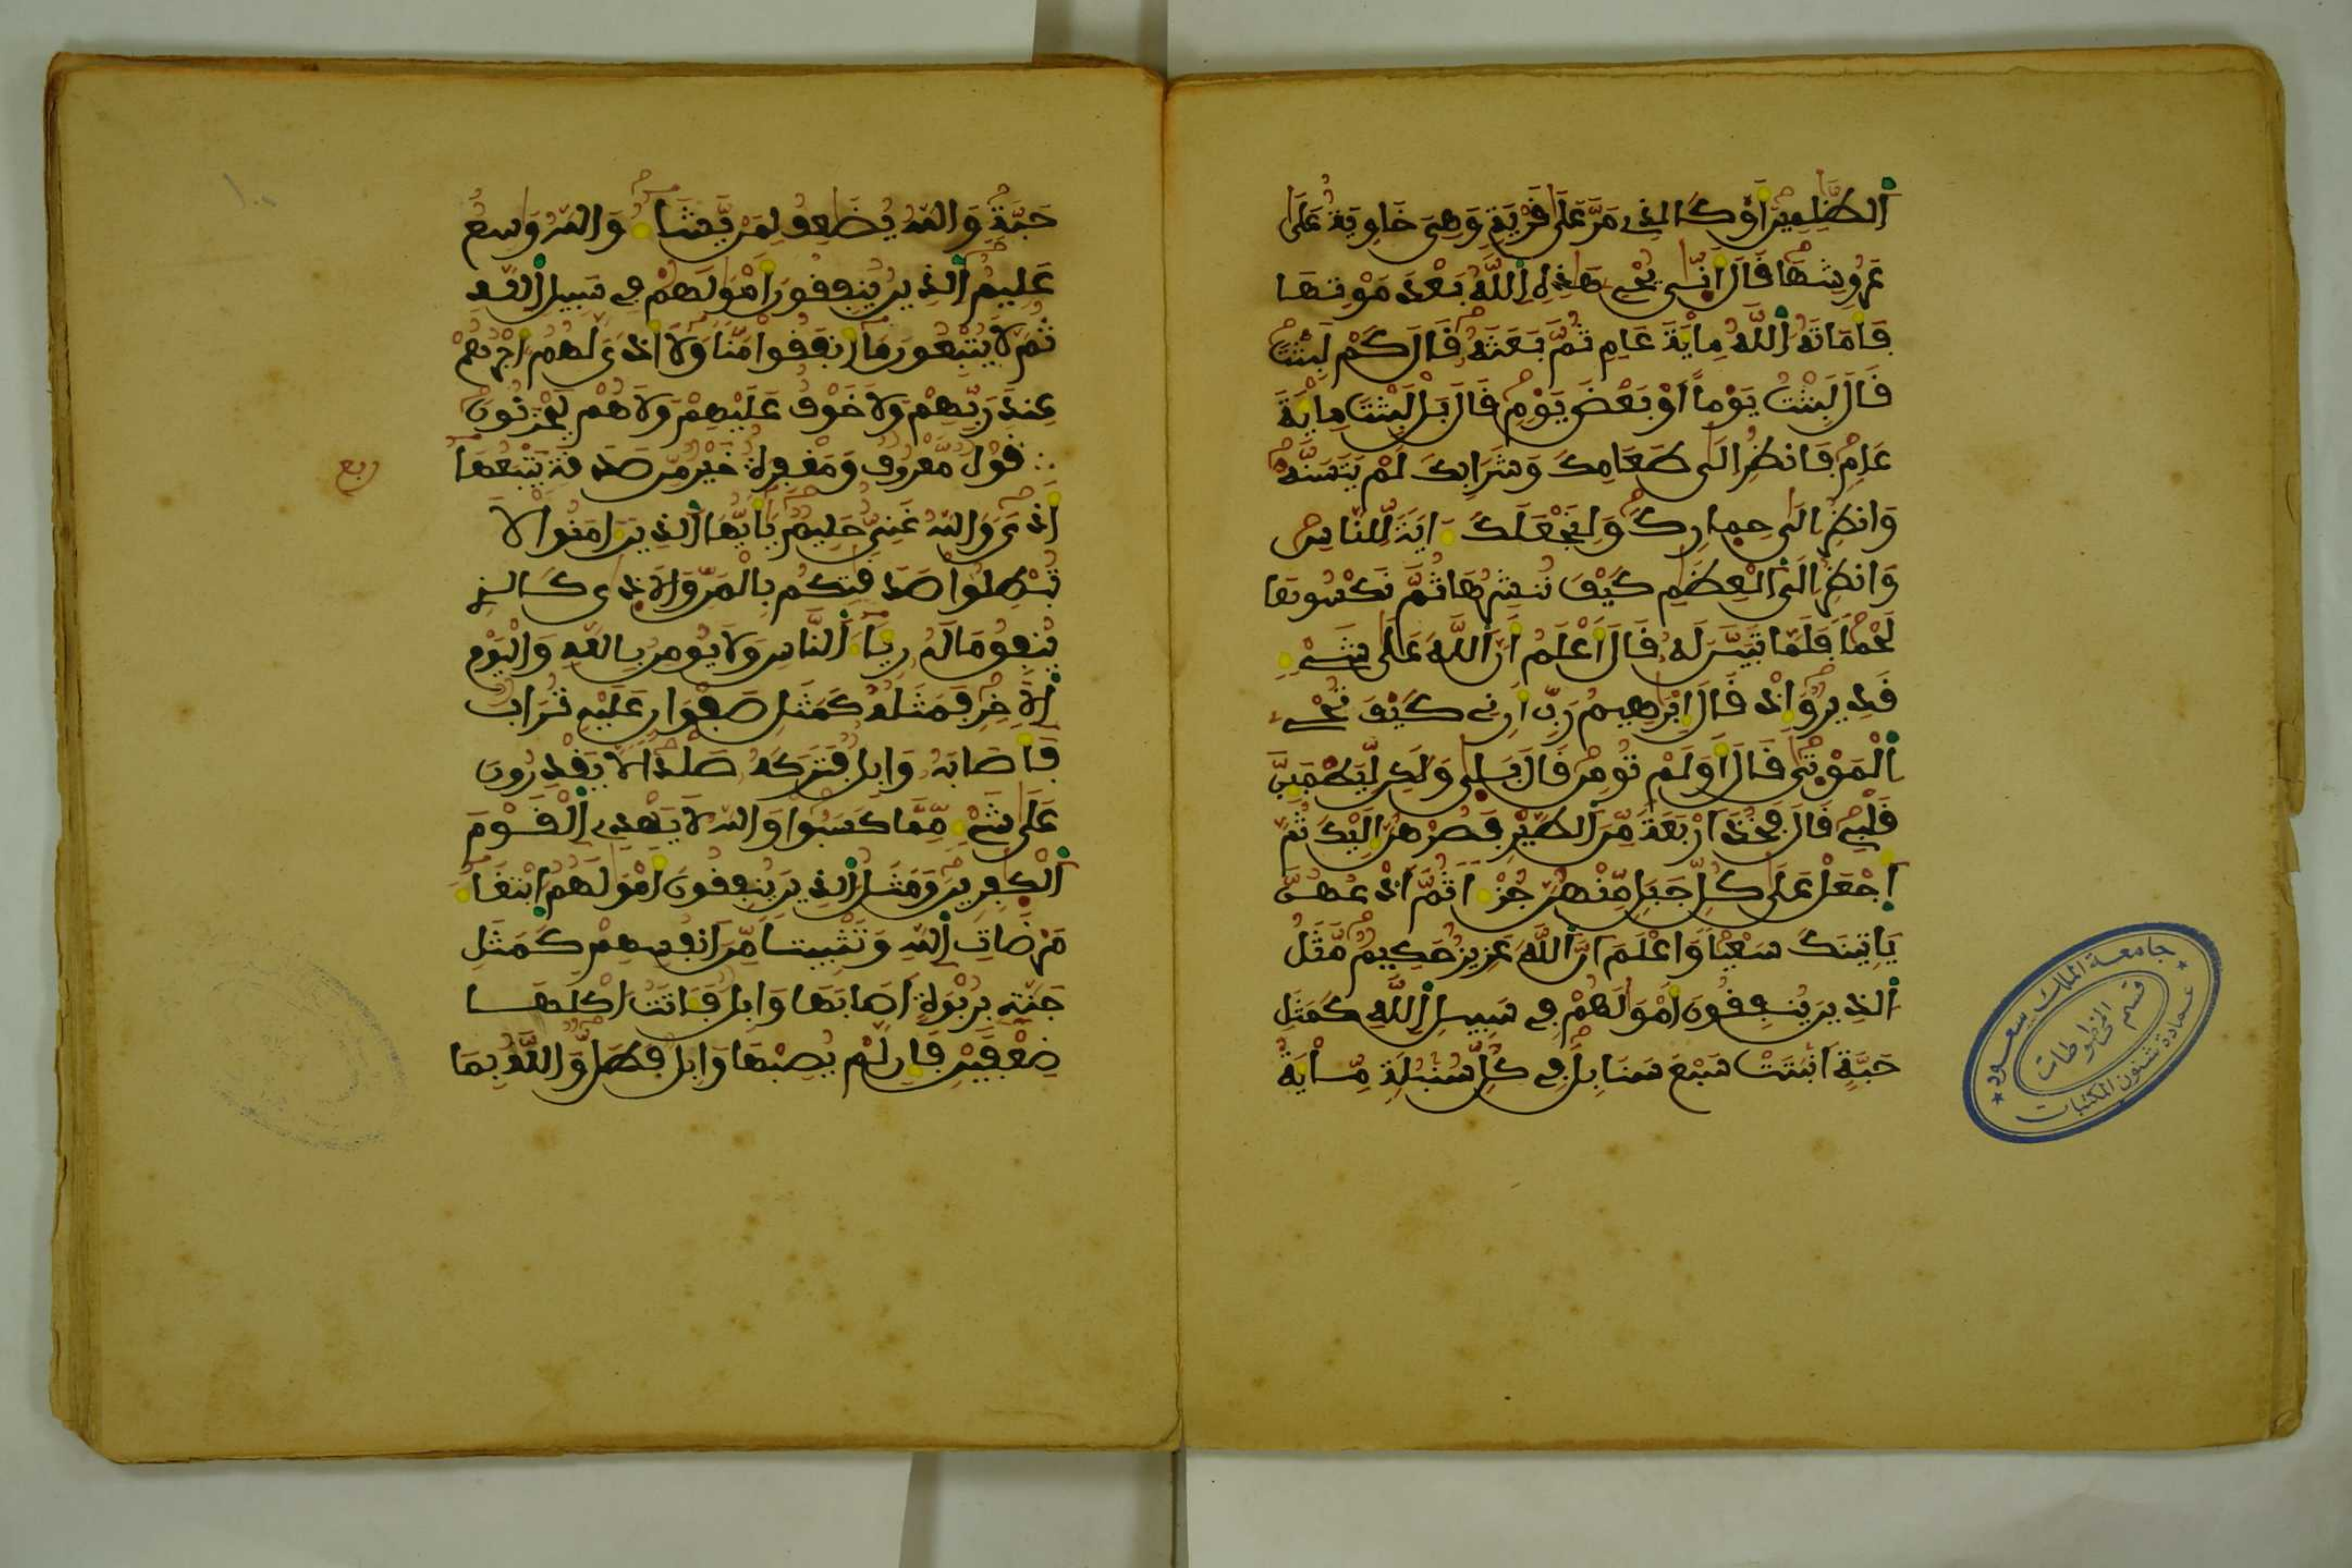 اَ۬لظَّٰلِمِينَ أَوْ كَالذِے مَرَّ عَلَىٰ قَرْيَةٍ وَهِيَ خَاوِيَةٌ عَلَىٰ
عُرُوشِهَا قَالَ أَنّٰي يُحْيِے هَٰذِهِ اِ۬للَّهُ بَعْدَ مَوْتِهَا
فَأَمَاتَهُ اُ۬للَّهُ مِاْيَةَ عَامٍ ثُمَّ بَعَثَهُۥ قَالَ كَمْ لَبِثْتَ
قَالَ لَبِثْتُ يَوْماً اَوْ بَعْضَ يَوْمٍ قَالَ بَل لَّبِثْتَ مِاْيَةَ
عَامٍ فَانظُرِ الَىٰ طَعَامِكَ وَشَرَابِكَ لَمْ يَتَسَنَّهْ
وَانظُرِ الَىٰ حِمارِكَ وَلِنَجْعَلَكَ ءَايَةً لِّلنَّاسِ
وَانظُرِ الَى اَ۬لْعِظَٰمِ كَيْفَ نُنشِرُهَا ثُمَّ نَكْسُوهَا
لَحْماً فَلَمَّا تَبَيَّنَ لَهُۥ قَالَ أَعْلَمُ أَنَّ اَ۬للَّهَ عَلَىٰ كُلِّ شَےْءٍ
قَدِيرٌ وَإِذْ قَالَ إِبْرَٰهِيمُ رَبِّ أَرِنِے كَيْفَ تُحْيِ
اِ۬لْمَوْتَىٰ قَالَ أَوَلَمْ تُومِن قَالَ بَلَىٰ وَلَٰكِن لِّيَطْمَئِنَّ
قَلْبِے قَالَ فَخُذَ ارْبَعَةً مِّنَ اَ۬لطَّيْرِ فَصُرْهُنَّ إِلَيْكَ ثُمَّ
اَ۪جْعَلْ عَلَىٰ كُلِّ جَبَلٍ مِّنْهُنَّ جُزْءاً ثُمَّ اَ۟دْعُهُنَّ
يَاتِينَكَ سَعْياً وَاعْلَمَ اَنَّ اَ۬للَّهَ عَزِيزٌ حَكِيمٌ مَّثَلُ
اُ۬لذِينَ يُنفِقُونَ أَمْوَٰلَهُمْ فِے سَبِيلِ اِ۬للَّهِ كَمَثَلِ
حَبَّةٍ اَنۢبَتَتْ سَبْعَ سَنَابِلَ فِے كُلِّ سُنۢبُلَةٍ مِّاْيَةُ
جامعة الملك سعود
قسم المخطوطات
عمادة شئون المكتبات
حَبَّةٍ وَاللَّهُ يُضَٰعِفُ لِمَنْ يَّشَآءُ وَاللَّهُ وَٰسِعٌ
عَلِيمٌ اِ۬لذِينَ يُنفِقُونَ أَمْوَٰلَهُمْ فِے سَبِيلِ اِ۬للَّهِ
ثُمَّ لَا يُتْبِعُونَ مَآ أَنفَقُوا مَنّاً وَلَآ أَذىً لَّهُمُۥٓ أَجْرُهُمْ
عِندَ رَبِّهِمْ وَلَا خَوْفٌ عَلَيْهِمْ وَلَا هُمْ يَحْزَنُونَ
ربع
قَوْلٌ مَّعْرُوفٌ وَمَغْفِرَةٌ خَيْرٌ مِّن صَدَقَةٍ يَتْبَعُهَآ
أَذىً وَاللَّهُ غَنِيٌّ حَلِيمٌ يَٰٓأَيُّهَا اَ۬لذِينَ ءَامَنُوا لَا
تُبْطِلُوا صَدَقَٰتِكُم بِالْمَنِّ وَالَاذَىٰ كَالذِے
يُنفِقُ مَالَهُۥ رِيَآءَ اَ۬لنَّاسِ وَلَا يُومِنُ بِاللَّهِ وَالْيَوْمِ
اِ۬لَاخِرِ فَمَثَلُهُۥ كَمَثَلِ صَفْوَانٍ عَلَيْهِ تُرَابٌ
فَأَصَابَهُۥ وَابِلٌ فَتَرَكَهُۥ صَلْداً لَّا يَقْدِرُونَ
عَلَىٰ شَےْءٍ مِّمَّا كَسَبُوا وَاللَّهُ لَا يَهْدِے اِ۬لْقَوْمَ
اَ۬لْكٰفِرِينَ وَمَثَلُ اُ۬لذِينَ يُنفِقُونَ أَمْوَٰلَهُمُ اُ۪بْتِغَآءَ
مَرْضَاتِ اِ۬للَّهِ وَتَثْبِيتاً مِّنَ اَنفُسِهِمْ كَمَثَلِ
جَنَّةٍ بِرُبْوَةٍ اَصَابَهَا وَابِلٌ فَـَٔاتَتُ اكْلَهَا
ضِعْفَيْنِ فَإِن لَّمْ يُصِبْهَا وَابِلٌ فَطَلٌّ وَاللَّهُ بِمَا